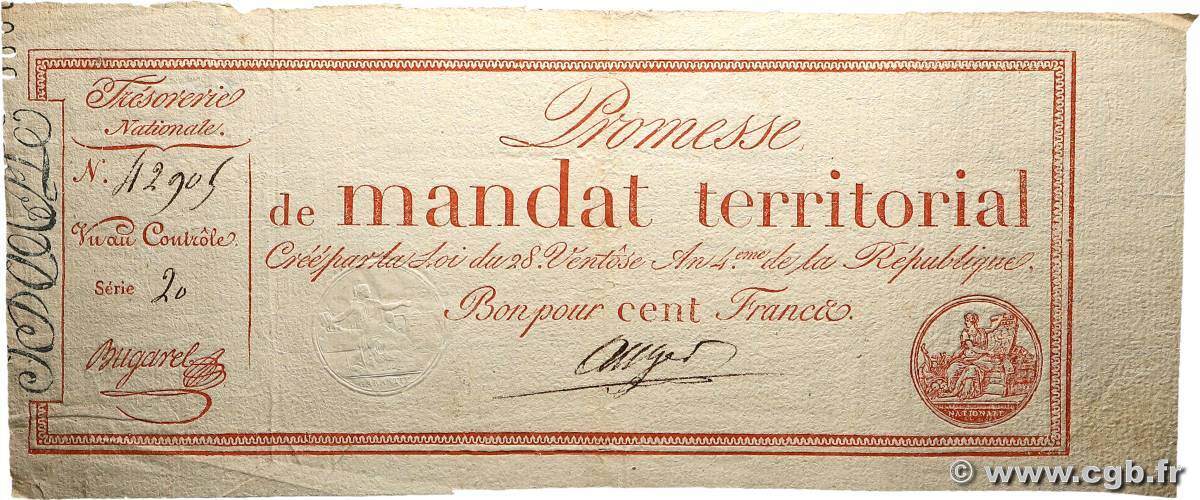 Trésorerie
Nationale.
N. 42905
Vu au Contrôle.
Série 20
Bugarel
Promesse
de mandat territorial
Créé par la Loi du 28. Ventôse An 4.eme de la République.
Bon pour cent Francs.
Auger
NATIONALE
© www.cgb.fr